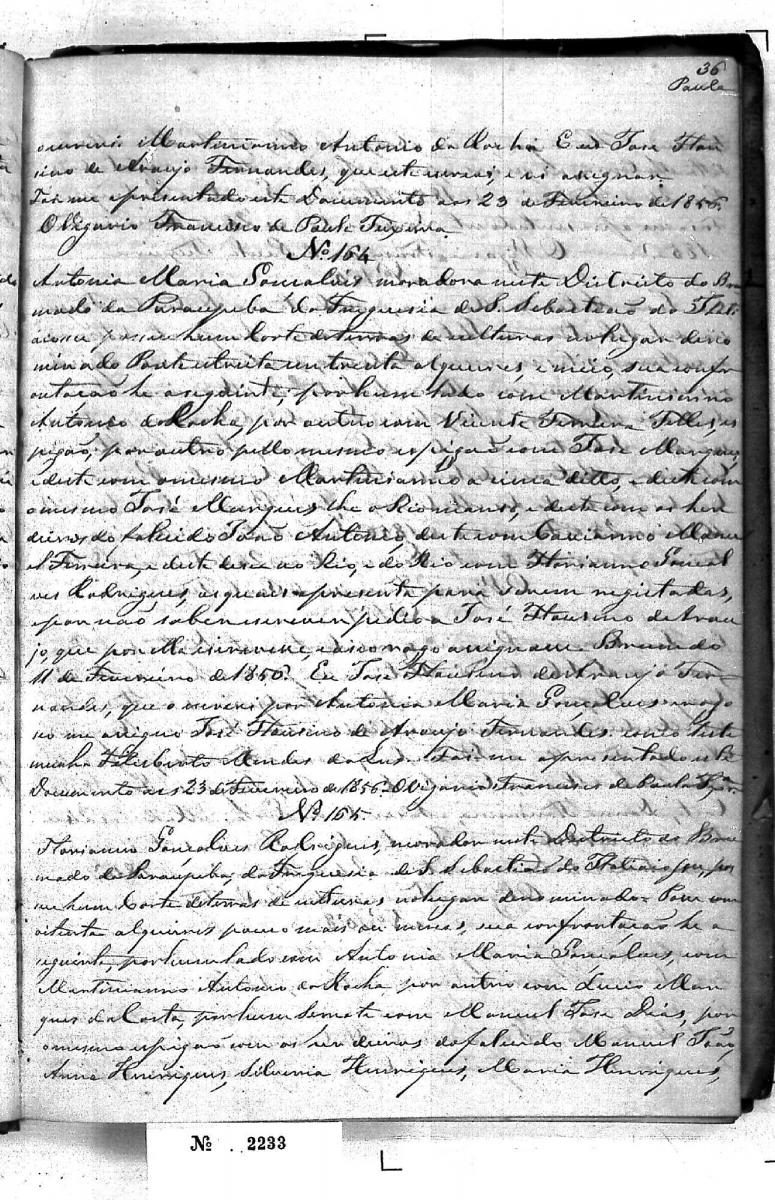 36
Paula
escrevi. Martinianno Antonio da Rocha Eu José Hau
sino de Araujo Fernandes, que este escrevi, e vi asignar
Foi me apresentado este Documento aos 23 de Fevereiro de 1856.
O Vigario Francisco de Paula Teixeira
No 164
Antonia Maria Gonçalves moradora neste Districto do Bru
mado da Paraupeba da Freguesia de S. Sebastião do Itati
aiossu possue hum Corte de terras de culturas no lugar deno
minado Ponte estreita com trenta alqueires, e meio, sua confr
ontação he a seguinte; por hum lado com Martinianno
Antonio da Rocha, por outro com Vicente Ferreira Telles, es
pigão, por outro pello mesmo espigão com José Marques,
e deste com o mesmo Martinianno a cima ditto, e deste com
o mesmo José Marques the o Riomanso, e deste com os her
deiros do falecido João Antonio, deste com Caecianno Mano
el Ferreira, e deste desce ao Rio, e do Rio com Florianno Goncal
ves Rodrigues, as quais apresenta para serem registadas,
e por não saber escrever pedio a José Hausino de Arau
jo, que por Ella escrevese, e a seo rogo asignase Brumado
11 de Fevereiro de 1856. Eu José Hausino de Araujo Fer
nandes, que o escrevi por Antonia Maria Gonçalves a rogo
no me asigno José Hausino de Araujo Fernandes. como teste
munha Felisberto Mendes da Lus. Foi me apresentado este
Documento aos 23 de Fevereiro de 1856. O Vigario Francisco de Paula Teixra
No 165
Florianno Gonçalves Rodrigues, morador neste Districto do Bru
mado da Paraupeba, da Freguesia de S. Sebastião do Itatiaiossu, po
sue hum Corte de terras de culturas no lugar denominado com
oitenta alqueires pouco mais ou menos, sua confrontação he a
seguinte, por hum lado com Antonia Maria Gonçalves, com
Martinianno Antonio da Rocha por outro com Lucio Mar
ques da Costa, por hum Semate com Manuel José Dias, por
o mesmo espigão com os herdeiros do falecido Manuel João,
Anna Henriques, Silveria Henriques, Maria Henriques,
No 2233